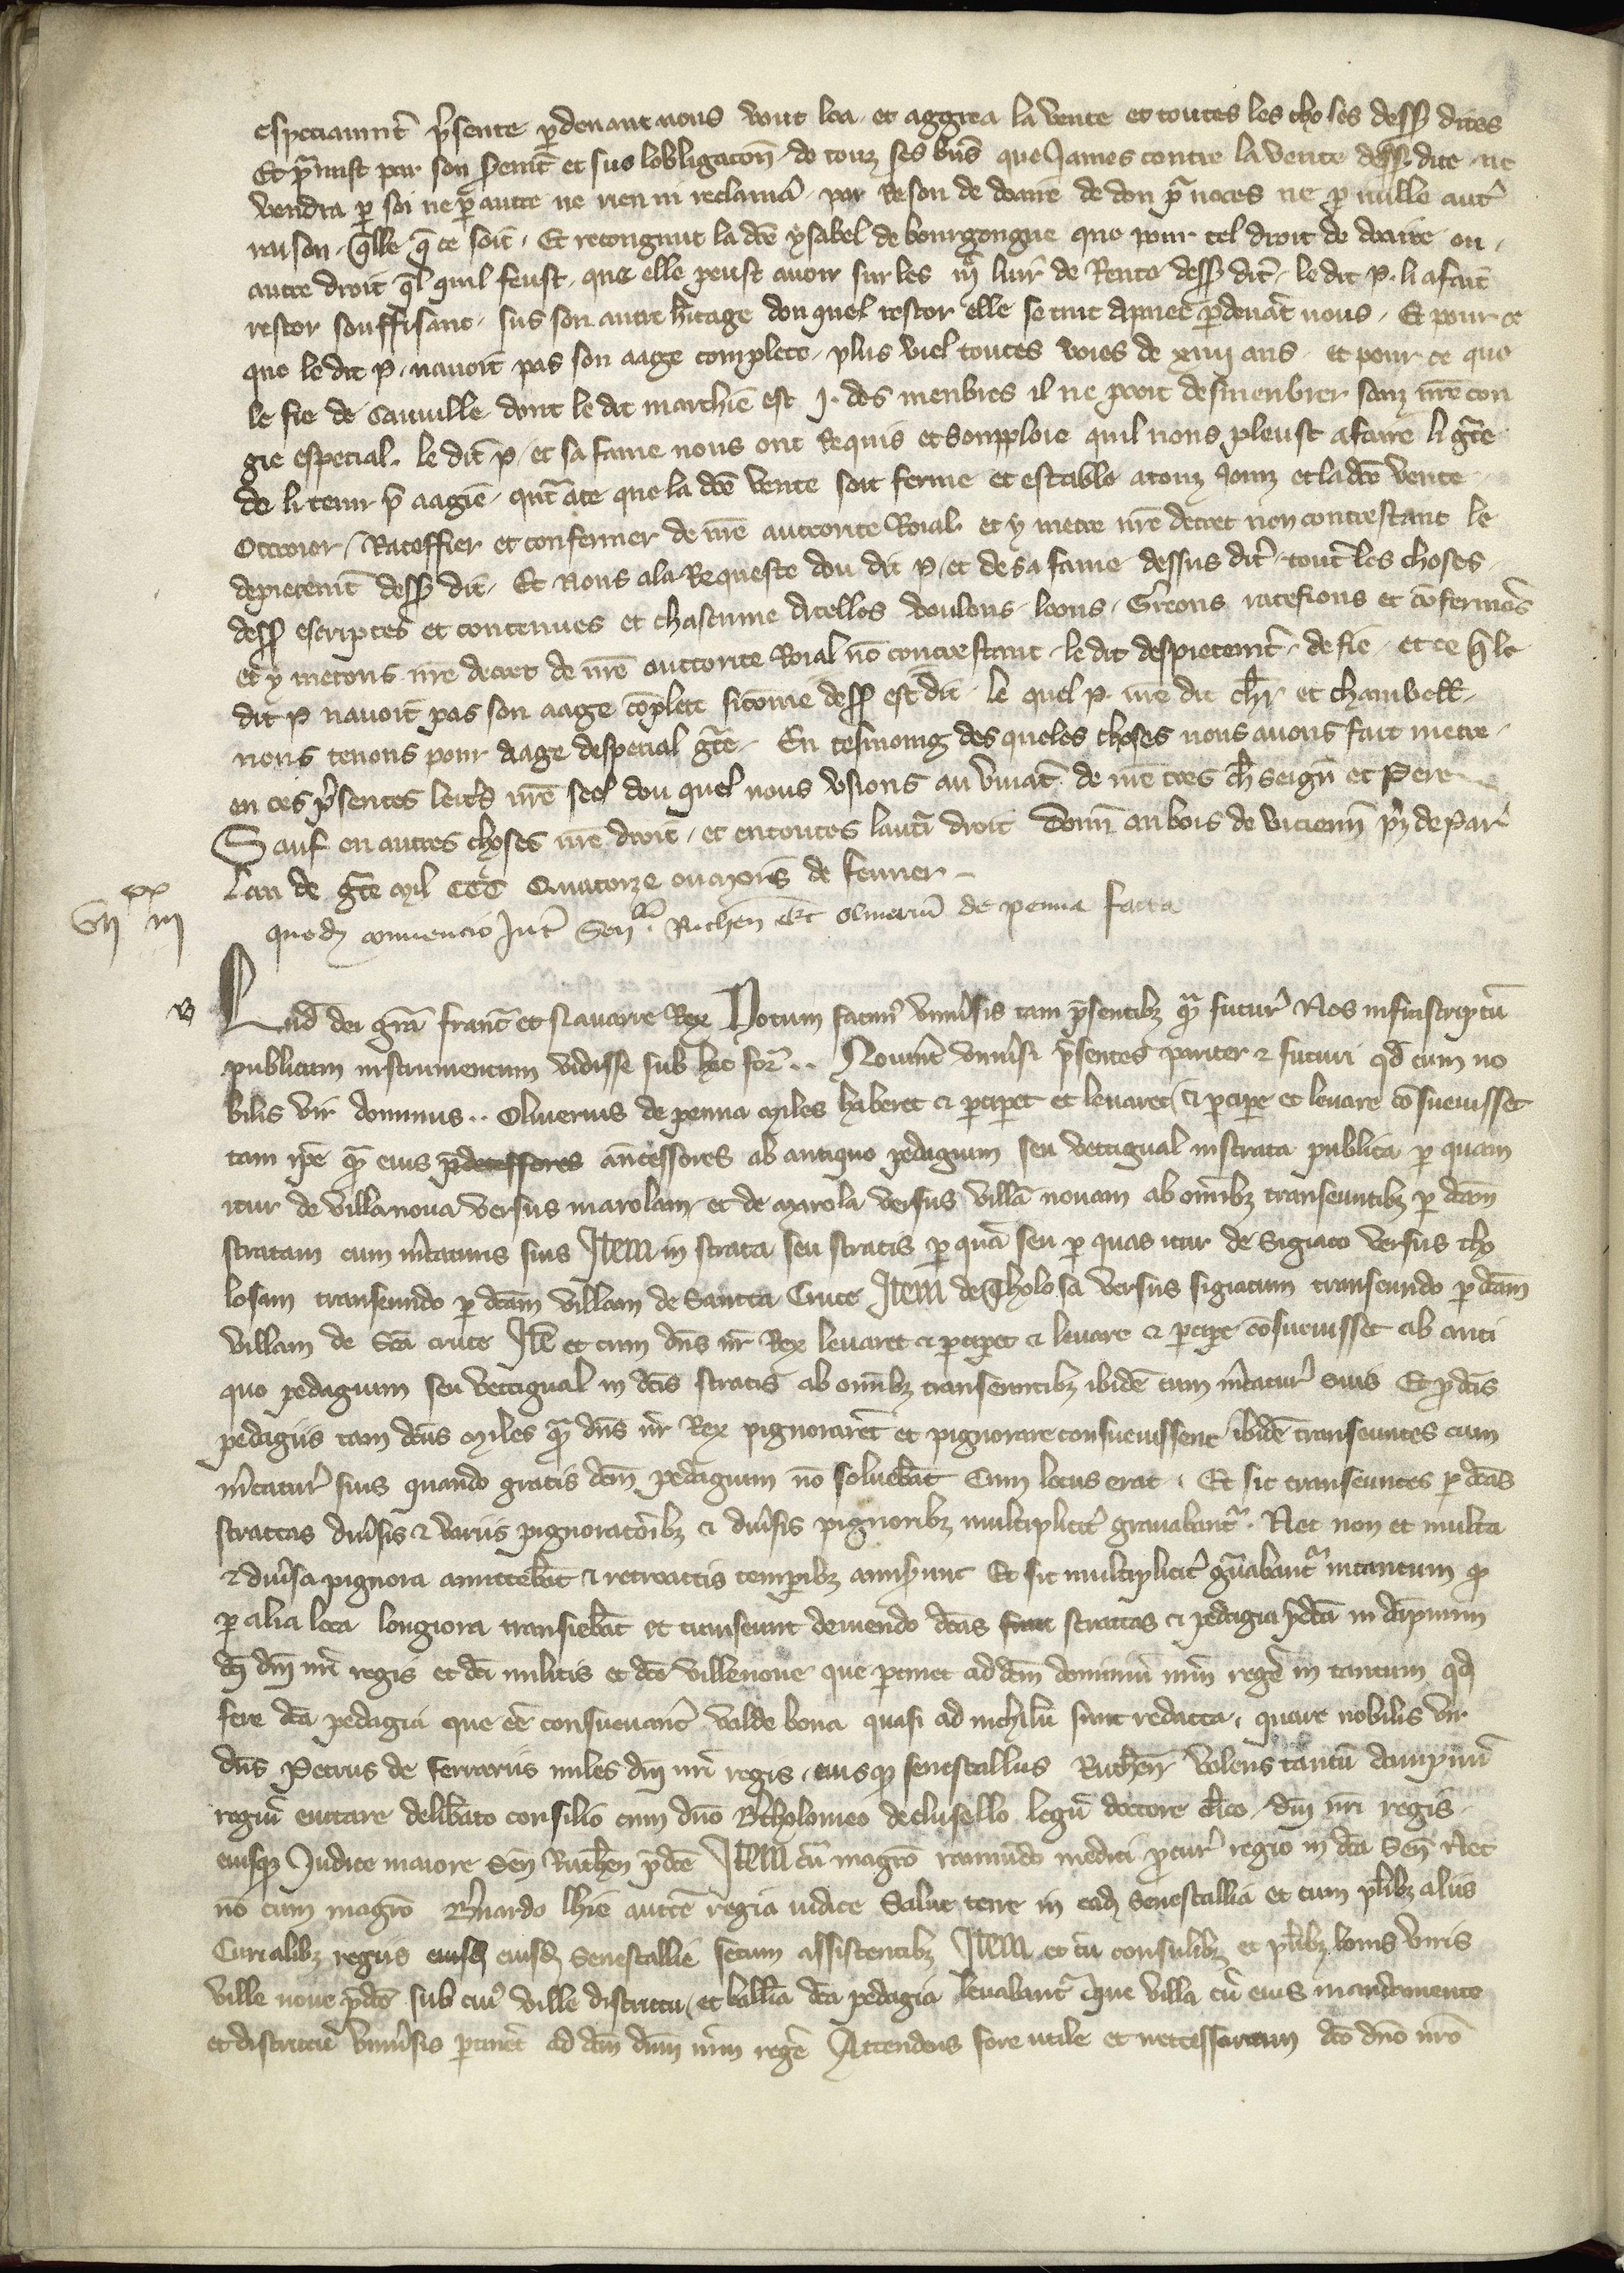 especiaumt p̄sente p̄deuant nous vout loa et aggrea la vente et toutes les choses dess9 dites
Et p̄mist par son seremt et sus lobligacōn de touz ses bn̄s que James contre la vente dess9 dite ne
vendra p̱ soi ne p̱ autre ne rien ni reclamā par Reson de doaire de don p̱ noces ne p̱ nulle aut̄
raison q̄lle q̄ ce soit Et recongnut la dc̄e ysabel de bourgongne que pour tel droit de doaire ou
autre droit q̄l quil feust que elle peust auoir sur les m̄ liur̄ de Rente dess9 dit̄ le dit P. li a fait
restor souffisant sus son autre h̄itage dou quel restor elle se tint apaiee p̱deuāt nous Et pour ce
que le dit P. nauoit pas son aage complete plus viel toutes voies de xiiij ans et pour ce que
le fie de Canuille dont le dit marchie est j. des menbres il ne pooit desmenbrer sanz nr̄e con
gie especial le dit P. et sa fame nous ont Requis et Somploie quil nous pleust a faire li gr̄ce
de li tenir p̱ aagie qn̄t a ce que la dc̄e vente soit ferme et estable a touz Jourz et la dc̄e vente
Ottroier Rateffier et confermer de nr̄e auctorite Roial et y metre nr̄e decret non contrestant le
depiecemt dess9 dit Et Nous a la Requeste dou dit P. et de sa fame dessus dit̄ tout̄ les choses
dess9 escriptes et contenues et chascune dicelles voulons loons Greons ratefions et cōfermōs
et y metons nr̄e decret de nr̄e auctorite Roial nō contrestant le dit despiecemt de fie et ce q̄ le
dit P. nauoit pas son aage cōplete si cōme dess9 est dit le quel P. nr̄e dit ch̄r et chambell̄
nous tenons pour aage despecial gr̄ce En tesmoing des queles choses nous auons fait metre
en ces p̄sentes lettres nr̄e seel dou quel nous vsions au viuāt de nr̄e tres ch̄ seign̄ et Pere
Sauf en autres choses nr̄e droit et en toutes lautrui droit Donn̄ au bois de vicienn̄ p̱s de Par̄
Lan de gr̄ce mil CCC Quatorze ou mois de feurier
vij xx iij
quedā conuencio Int̄ Senllū Ruthen̄ & Oliueriū de penna facta
Lud̄ dei gr̄a franc̄ et Nauarre Rex Notum facim9 vniu̇sis tam p̄sentibz q̱m futur̄ Nos infrascriptū
publicum instrumentum vidisse sub hec for̄ .. Nouint vniu̇si p̄sentes pariter & futuri qd̄ cum no
bilis vir dominus .. Oliuerius de penna miles haberet & p̱cip̱et et leuaret & p̱cip̱e et leuare cōsueuisset
tam ip̄e q̱m eius predecessores an̄cessores ab antiquo pedagium seu vectigual in strata publica p̱ quam
itur de villanoua versus marolam et de marola versus villā nouam ab omībz transeuntibz p̱ dc̄am
stratam cum m̄caturis suis Item in strata seu stratis p̱ quā seu p̱ quas itur de Sigiaco versus tho
losam transeundo p̱ dc̄am villam de Sancta Cruce Item de Tholosa versus sigiacum transeundo p̱ dc̄am
villam de Sc̄a cruce It̄ et cum dn̄s nr̄ Rex leuaret & p̱cip̱et & leuare & p̱cip̱e cōsueuisset ab anti
quo pedagium seu vectigual in dc̄is stratis ab omībz transeuntibz ibidē cum m̄catur̄ suis Et p̱ dc̄is
pedagiis tam dc̄us miles q̱m dn̄s nr̄ Rex pignoraret et pignorare consueuissent ibidē transeuntes cum
m̄catur̄ suis quando gratis dc̄m pedagium nō soluebāt Cum locus erat Et sic transeuntes p̱ dc̄as
stractas diu̇sis & variis pignoratōibz & diu̇sis pignoribz multiplicit̄ grauabant̄ Nec non et multa
& diu̇sa pignora amittebāt & retroactis tempībz amis̄unt Et sic multiplicit̄ g̱uabant̄ intantum q̱
p̱ alia loca longiora transiebāt et transeunt deuiendo dc̄as stractas & pedagia p̄dc̄a in dāpnum
dc̄i dn̄i nr̄i regis et dc̄i militis et dc̄e villenoue que p̱tinet ad dc̄m dominū nr̄m regē in tantum qd̄
fere dc̄a pedagia que eē consueuant̄ valde bona quasi ad nichilū sunt redacta quare nobilis vir
dn̄s Petrus de ferrariis miles dn̄i nr̄i regis eiusq̱ senescallus Ruthen̄ volens tantū dampnū
regiū euitare delib̄ato consilio cum dn̄o B̄tholomeo de clusello legū doctore cl̄ico dn̄i nr̄i regis
eiusq̱ Judice maiore Sen̄ Ruthen̄ p̄dc̄e Item cū magrō raimūdo medici p̱cur̄ regio in dc̄a Sen̄ Nec
nō cum magrō B̄nardo lhie auctē regia iudice Saluet̄erre in ead̄ Senescallia et cum pl̄ibz aliis
Curialibz regiis eiusd̄ eiusd̄ Senescallie secum assistentibz Item et cū consulibz et pl̄ibz bonis viris
ville noue p̄dc̄e sub cui9 ville districtu et ballīa dc̄a pedagia leuabant̄ Que villa cū eius mandamento
et districtu vniu̇sis p̱tinet ad dc̄m dn̄m nr̄m regē Attendens fore vtile et neccessarium dc̄o dn̄o nr̄o